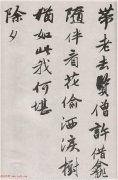 老去賢僧許借龕
隨伴看花偷洒淚樹
猶如此我何堪
除夕